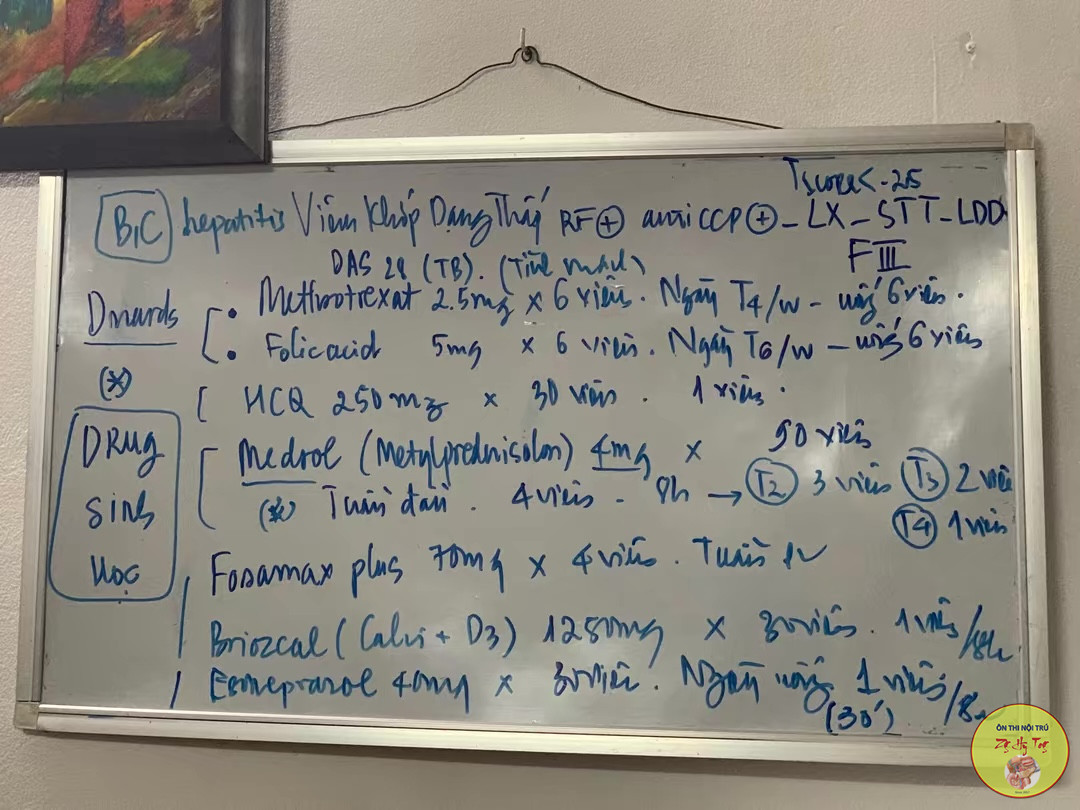 Tscore < -2.5
B,C hepatitis Viêm Khớp Dạng Thấp RF ⊕ anti CCP ⊕ - LX - STT - LDD
F III
DAS 28 (TB).
Dmards
• Methrotrexat 2.5mg × 6 viên. Ngày T4/w - uống 6 viên.
• Folic acid 5mg × 6 viên. Ngày T6/w - uống 6 viên
(*)
HCQ 250mg × 30 viên. 1 viên.
DRUG
Sinh
Học
Medrol (Metylprednisolon) 4mg × 50 viên
(*) Tuần đầu. 4 viên - 8h → T2 3 viên T3 2 viên
T4 1 viên
Fosamax plus 70mg × 4 viên. Tuần
Briozcal (Calci + D3) 1250mg × 30 viên. 1 viên/8h
Esomeprazol 40mg × 30 viên. Ngày uống 1 viên/8h
(30')
ÔN THI NỘI TRÚ